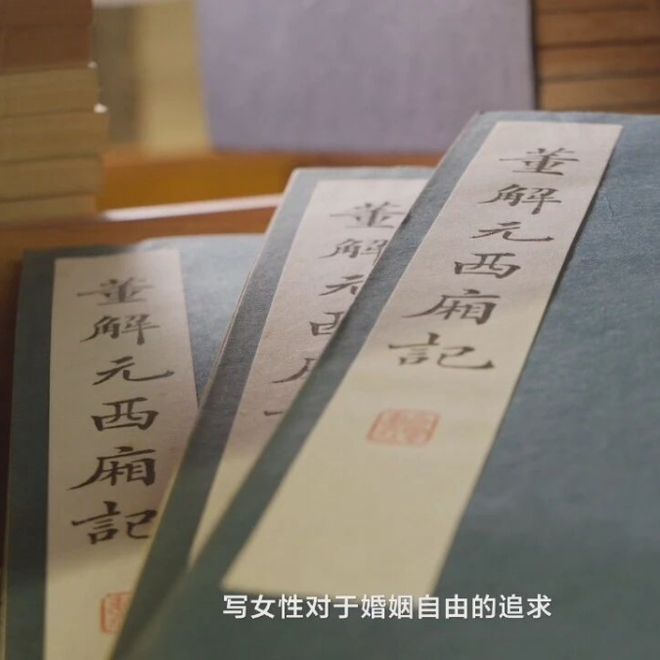 董解元西廂記
董解元西廂
董解元西廂記
写女性对于婚姻自由的追求